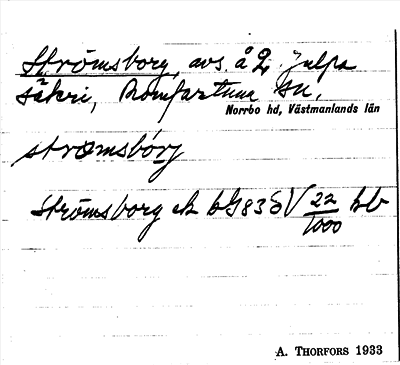 Strömsborg, avs. å 2 Julpa
säkri, Romfartuna sn.
Norrbo hd, Västmanlands län
strömsbórj
Strömsborg ek bG83d V 22/1000 kb
A. THORFORS 1933